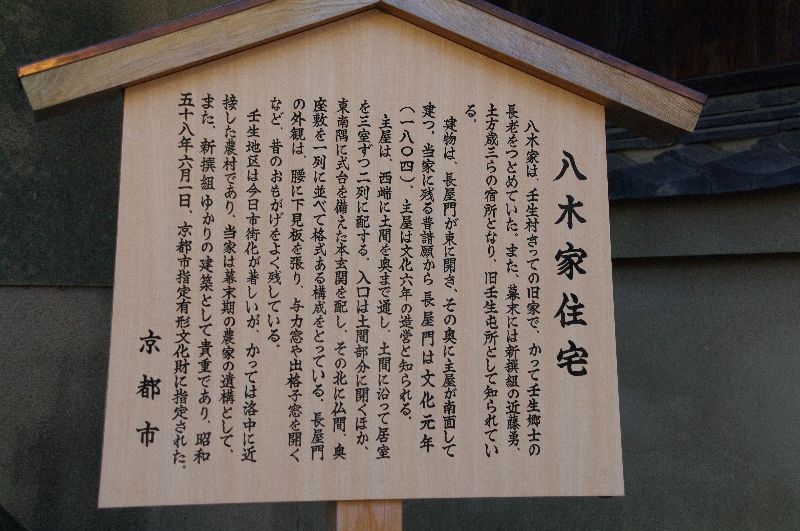 八木家住宅
八木家は、壬生村きっての旧家で、かって壬生郷士の
長老をつとめていた。また、幕末には新撰組の近藤勇、
土方歳三らの宿所となり、旧壬生屯所として知られてい
る。
建物は、長屋門が東に開き、その奥に主屋が南面して
建つ。当家に残る普請願から長屋門は文化元年
(一八〇四)、主屋は文化六年の造営と知られる。
主屋は、西端に土間を奥まで通し、土間に沿って居室
を三室ずつ二列に配する。入口は土間部分に開くほか、
東南隅に式台を備えた本玄関を配し、その北に仏間、奥
座敷を一列に並べて格式ある構成をとっている。長屋門
の外観は、腰に下見板を張り、与力窓や出格子窓を開く
など、昔のおもがげをよく残している。
壬生地区は今日市街化が著しいが、かっては洛中に近
接した農村であり、当家は幕末期の農家の遺構として、
また、新撰組ゆかりの建築として貴重であり、昭和
五十八年六月一日、京都市指定有形文化財に指定された。
京都市